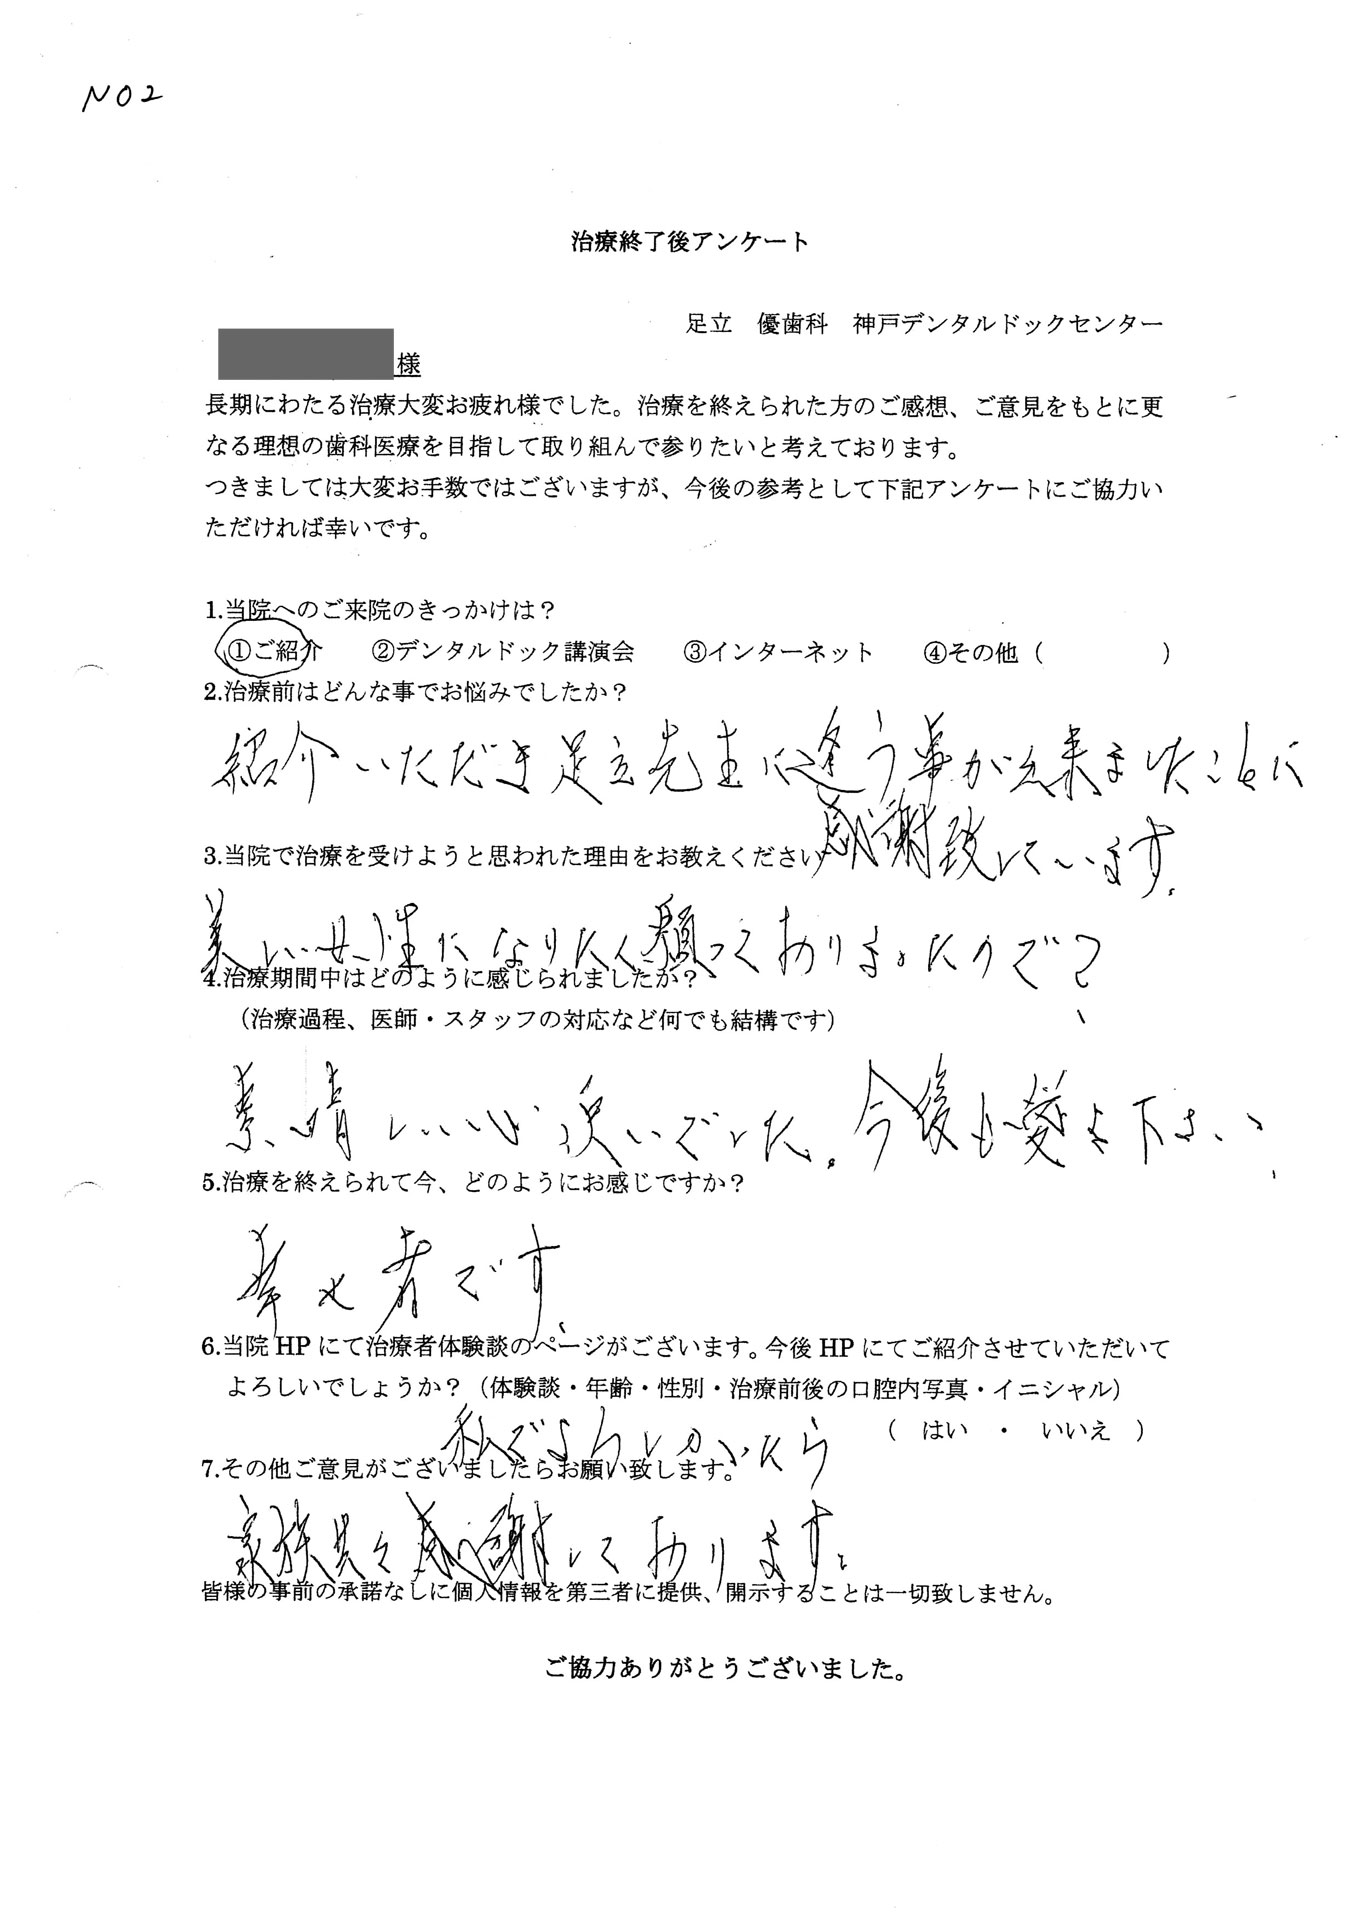 NO2
治療終了後アンケート
足立 優歯科 神戸デンタルドックセンター
様
長期にわたる治療大変お疲れ様でした。治療を終えられた方のご感想、ご意見をもとに更
なる理想の歯科医療を目指して取り組んで参りたいと考えております。
つきましては大変お手数ではございますが、今後の参考として下記アンケートにご協力い
ただければ幸いです。
1.当院へのご来院のきっかけは？
①ご紹介 ②デンタルドック講演会 ③インターネット ④その他（ ）
2.治療前はどんな事でお悩みでしたか？
紹介いただき足立先生に逢う事が出来ましたことに
感謝致しています。
3.当院で治療を受けようと思われた理由をお教えください
美しい女性になりたく願っておりましたので？
4.治療期間中はどのように感じられましたか？
（治療過程、医師・スタッフの対応など何でも結構です）
素晴しい心遣いでした。今後も愛を下さい
5.治療を終えられて今、どのようにお感じですか？
幸せ者です。
6.当院 HP にて治療者体験談のページがございます。今後 HP にてご紹介させていただいて
よろしいでしょうか？（体験談・年齢・性別・治療前後の口腔内写真・イニシャル）
（ はい ・ いいえ ）
私でよろしかったら
7.その他ご意見がございましたらお願い致します。
家族共々感謝しております。
皆様の事前の承諾なしに個人情報を第三者に提供、開示することは一切致しません。
ご協力ありがとうございました。